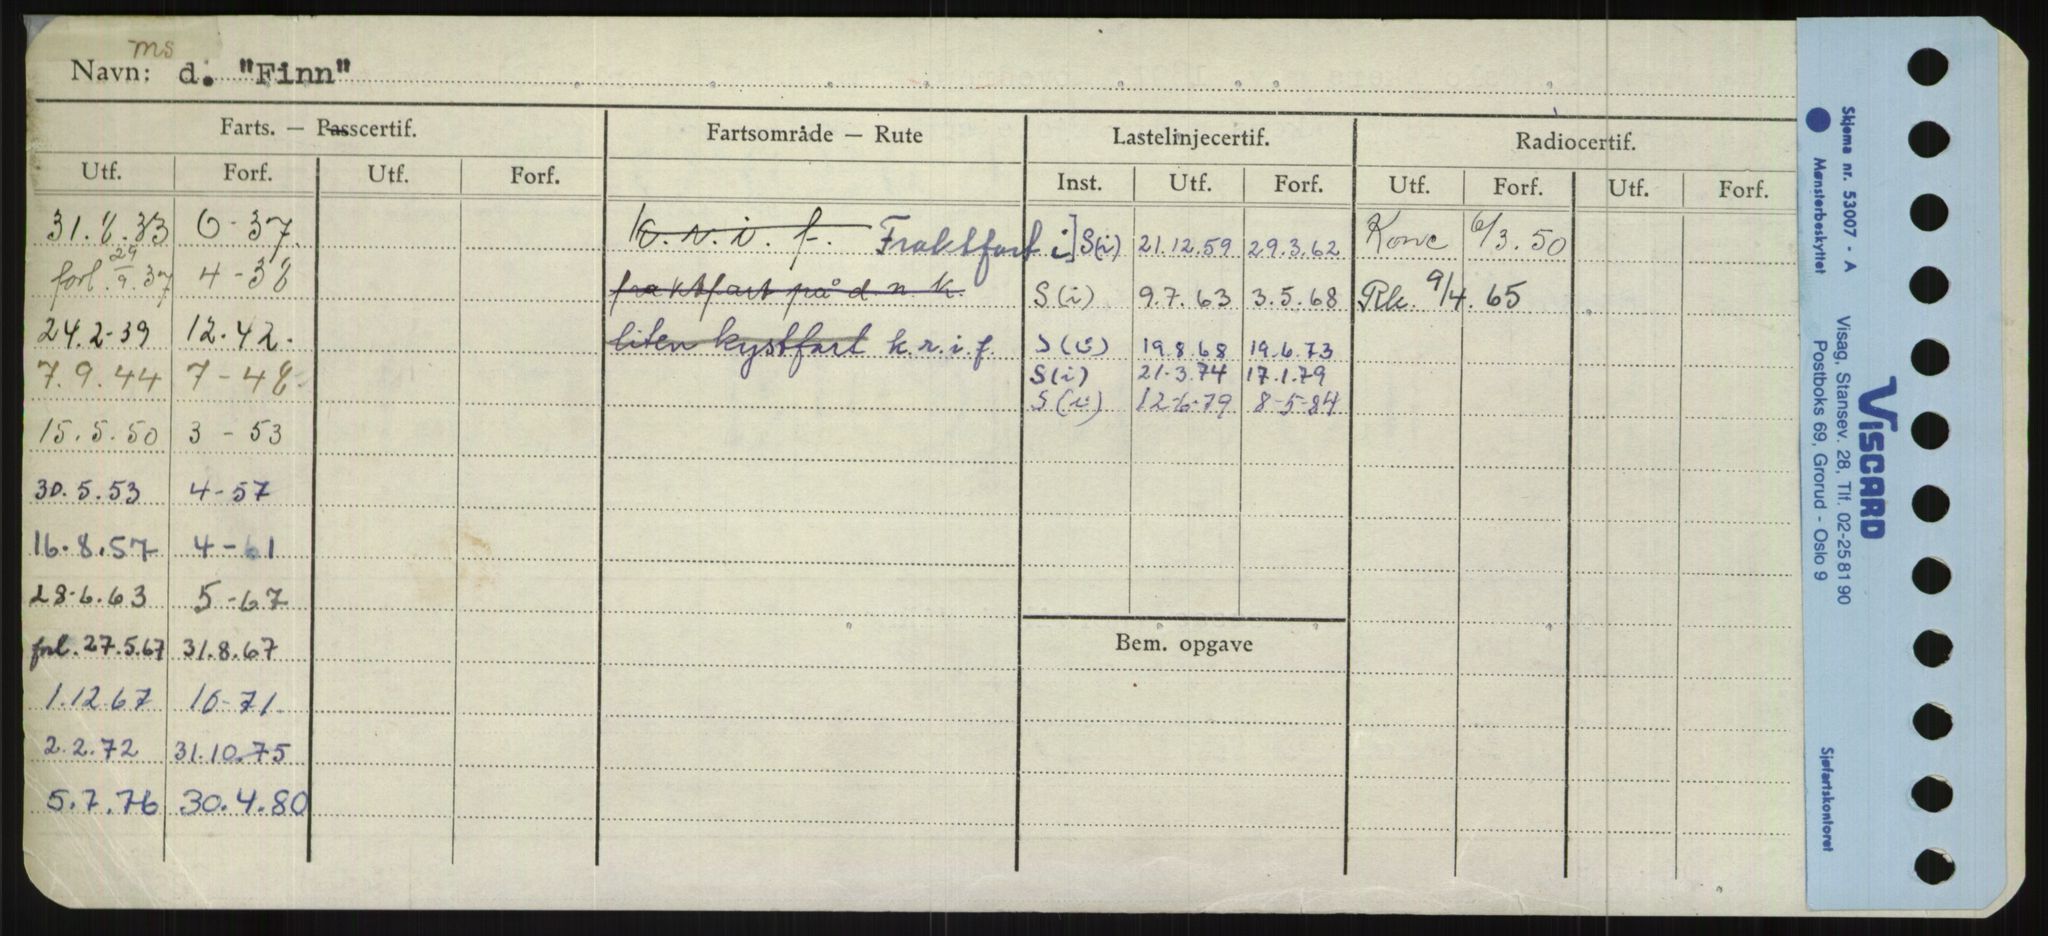 ms
Navn: d. "Finn"
Farts. — Passcertif. Fartsområde — Rute Lastelinjecertif. Radiocertif.
Utf. Forf. Utf. Forf. Inst. Utf. Forf. Utf. Forf. Utf. Forf.
31.8.33 6-37. k.r.i.f. Fraktfart i] S(i) 21.12.59 29.3.62 Konc 6/3.50
forl. 29/9.37 4-38 fraktfart på d.n.k. S(i) 9.7.63 3.5.68 Rk. 9/4.65
24.2-39 12.42. liten kystfart k.r.i.f. S(i) 19.8.68 19.6.73
7.9.44 7-48 S(i) 21.3.74 17.1.79
S(i) 12-6-79 8-5-84
15.5.50 3-53
30.5.53 4-57
16.8.57 4-61
28-6.63 5-67
forl. 27.5.67 31.8.67
Bem. opgave
1.12.67 10-71.
2.2.72 31.10.75
5.7.76 30.4.80
Skjema nr. 53007 - A
Mønsterbeskyttet
Visag, Stansev. 28, Tlf. 02-25 81 90
Postboks 69, Grorud - Oslo 9
VISCARD
Sjøfartskontoret